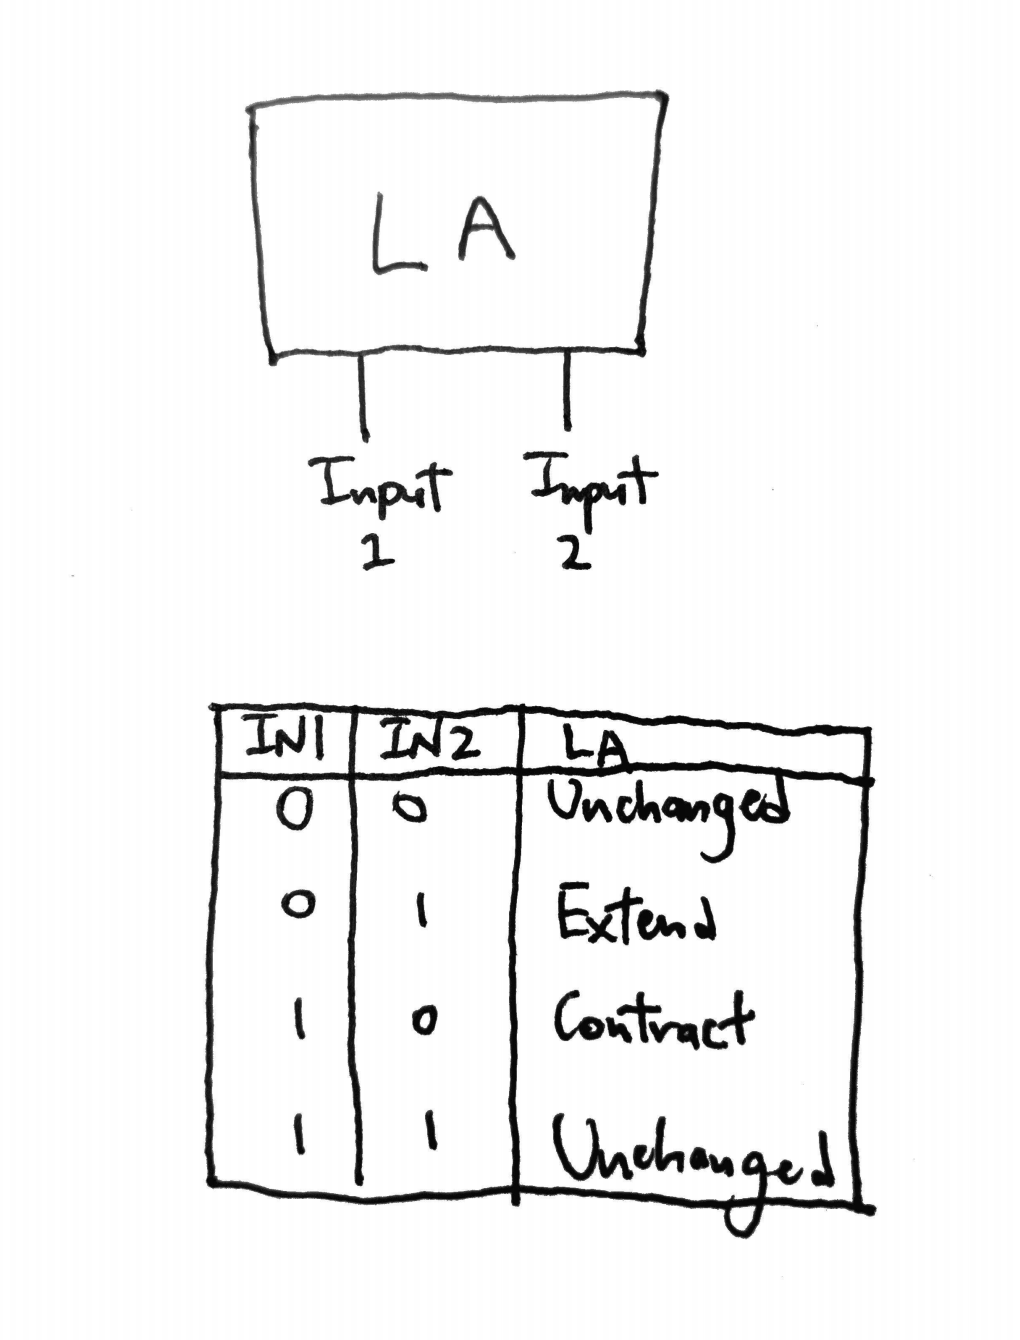 LA
Input Input
1 2
IN1 IN2 LA
0 0 Unchanged
0 1 Extend
1 0 Contract
1 1 Unchanged